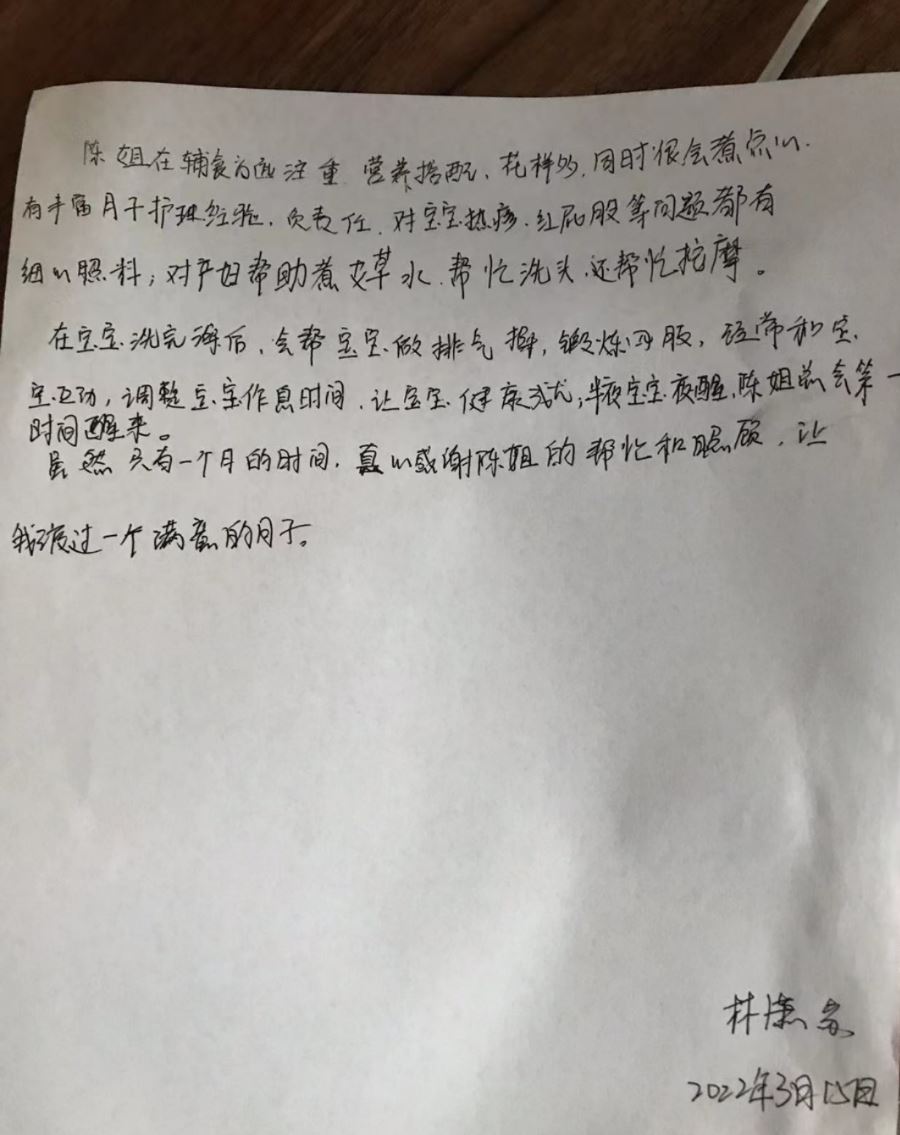 陈姐在辅食方面注重营养搭配、花样多,同时很会煮点心.
有丰富月子护理经验、负责任、对宝宝热疹、红屁股等问题都有
细心照料;对产妇帮助煮艾草水、帮忙洗头、还帮忙按摩。
在宝宝洗完澡后、会帮宝宝做排气操,锻炼四肢,经常和宝
宝互动,调整宝宝作息时间、让宝宝健康成长;半夜宝宝夜醒,陈姐总会第一
时间醒来。
虽然只有一个月的时间、真心感谢陈姐的帮忙和照顾、让
我渡过一个满意的月子。
林
2022年3月15日